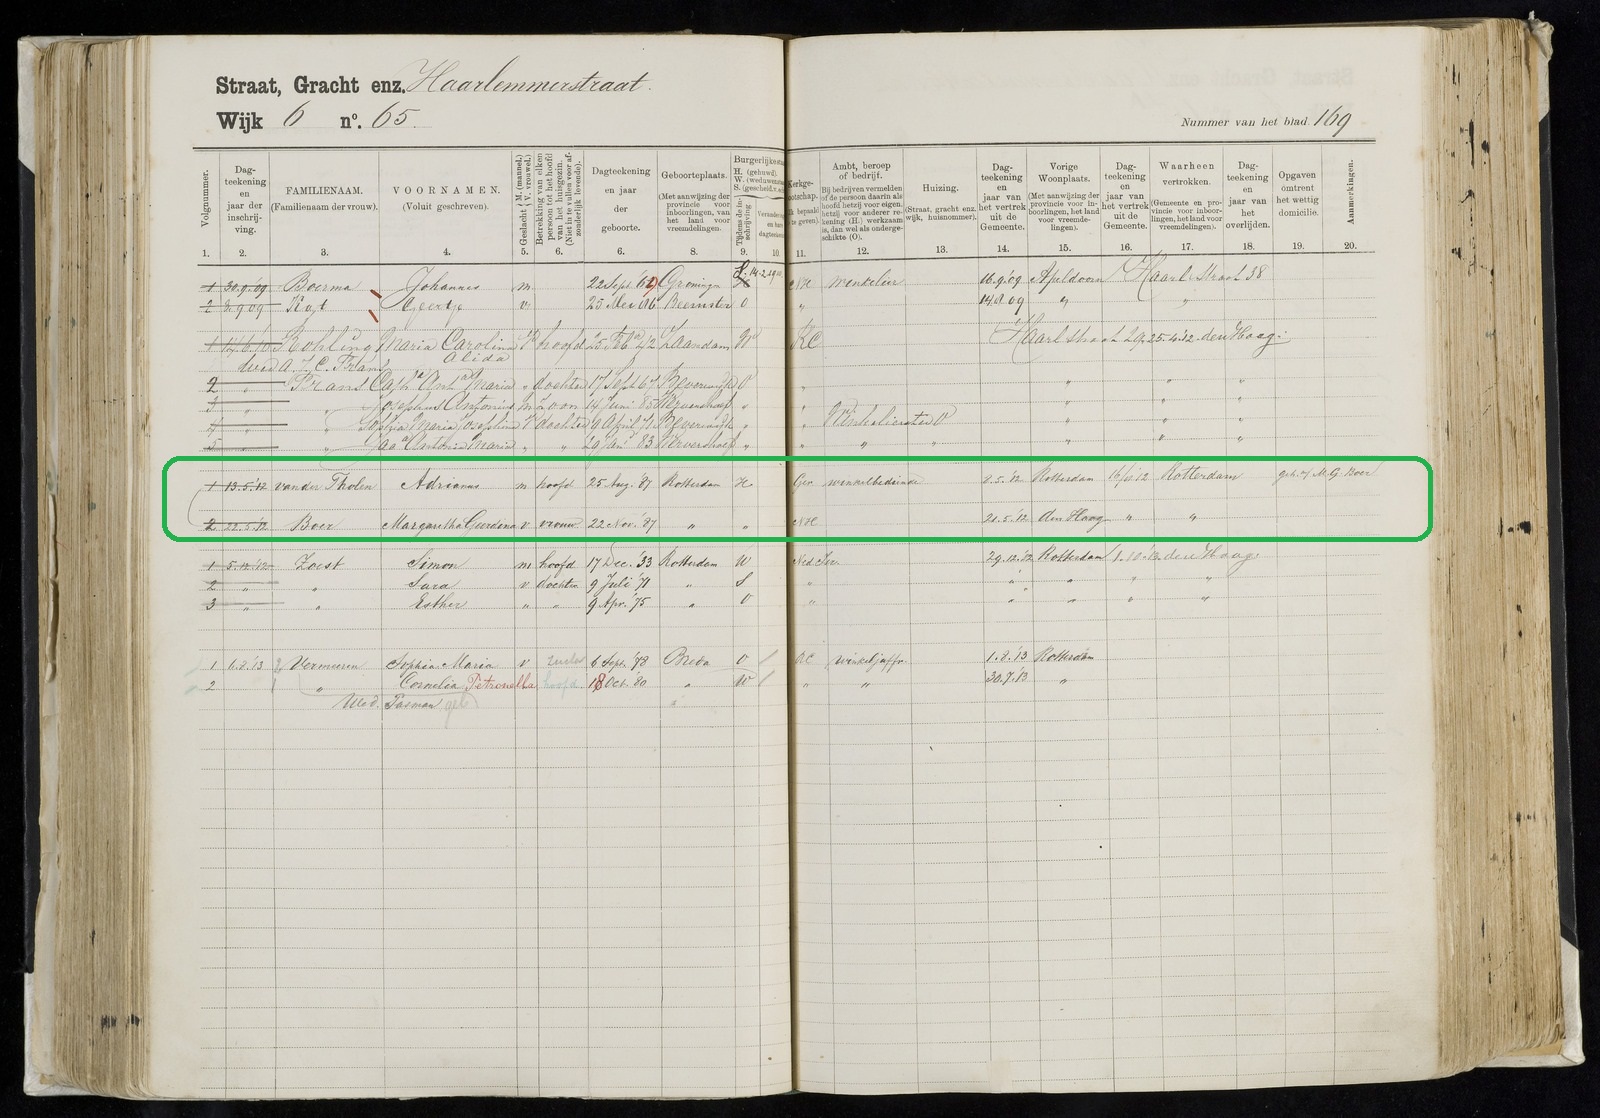 Straat, Gracht enz. Haarlemmerstraat.
Wijk 6 nº. 65.
Nummer van het blad. 169
Volgnummer. Dag- teekening en jaar der inschrij- ving. FAMILIENAAM. (Familienaam der vrouw). VOORNAMEN. (Voluit geschreven). Geslacht { M. (mannel.) V. vrouwel.) Betrekking van elken persoon tot het hoofd van het huisgezin. (Niet in te vullen voor af- zonderlijk levende). Dagteekening en jaar der geboorte. Geboorteplaats. (Met aanwijzing der provincie voor inboorlingen, van het land voor vreemdelingen). Burgerlijke H. (gehuwd). W. (weduw S. (gescheid. Tijdens de in- schrijving. Kerkge- Ambt, beroep of bedrijf. Bij bedrijven vermelden of de persoon daarin als hoofd hetzij voor eigen, hetzij voor anderer re- kening (H.) werkzaam is, dan wel als onderge- schikte (O). Huizing. (Straat, gracht enz. wijk, huisnommer). Dag- teekening en jaar van het vertrek uit de Gemeente. Vorige Woonplaats. (Met aanwijzing der provincie voor in- boorlingen, het land voor vreemde- lingen). Dag- teekening en jaar van het vertrek uit de Gemeente. Waarheen vertrokken. (Gemeente en pro- vincie voor inboor- lingen, het land voor vreemdelingen). Dag- teekening en jaar van het overlijden. Opgaven omtrent het wettig domicilie. Aanmerkingen.
1. 2. 3. 4. 5. 6. 6. 8. 9. 10. 11. 12. 13. 14. 15. 16. 17. 18. 19. 20.
1 30.9.09 Boerma Johannes m 22 Sept. Groningen NH winkelier 16.9.09 Apeldoorn Haarl. Straat 38
2 8.9.09 Geertje v 25 Mei Beemster O " 14.8.09 " "
1 Maria Carolina Alida v hoofd 25 Zaandam W RC Haarlstraat 29. 25.4.12 den Haag.
2 " Frans Maria " dochter 17 Sept Beverwijk O " " " "
3 " " Josephus Antonius m zoon 14 Juni 85 " " " " "
4 " " Sophia Maria Josephina v dochter 9 April Beverwijk " " Winkelierster O " " "
5 " " Antonia Maria " " 83 " " " " " "
1 13.5.'12 van der Tholen Adrianus m hoofd 25 Aug. '87 Rotterdam H Ger winkelbediende 8.5.'12 Rotterdam Rotterdam geh. M. G. Boer
2 22.5.'12 Boer Margaretha Gerdina v vrouw 22 Nov. '87 " " NH 21.5.'12 den Haag " "
1 5.12.'12 Zoest Simon m hoofd 17 Dec. '33 Rotterdam W Ned Isr. 29.12.'12 Rotterdam den Haag.
2 " " Sara v dochter 9 Juli '71 " S " " " " "
3 " " Esther " " 9 Apr. '75 " O " " " " "
1 1.8.'13 2 Vermeeren Sophia Maria v zuster 6 Sept. '78 Breda O RC winkeljuffr. 1.8.'13 Rotterdam
2 1 " Cornelia Petronella hoofd 18 Oct. '80 " W " " 30.7.'13 "
Wed. Pasman geb